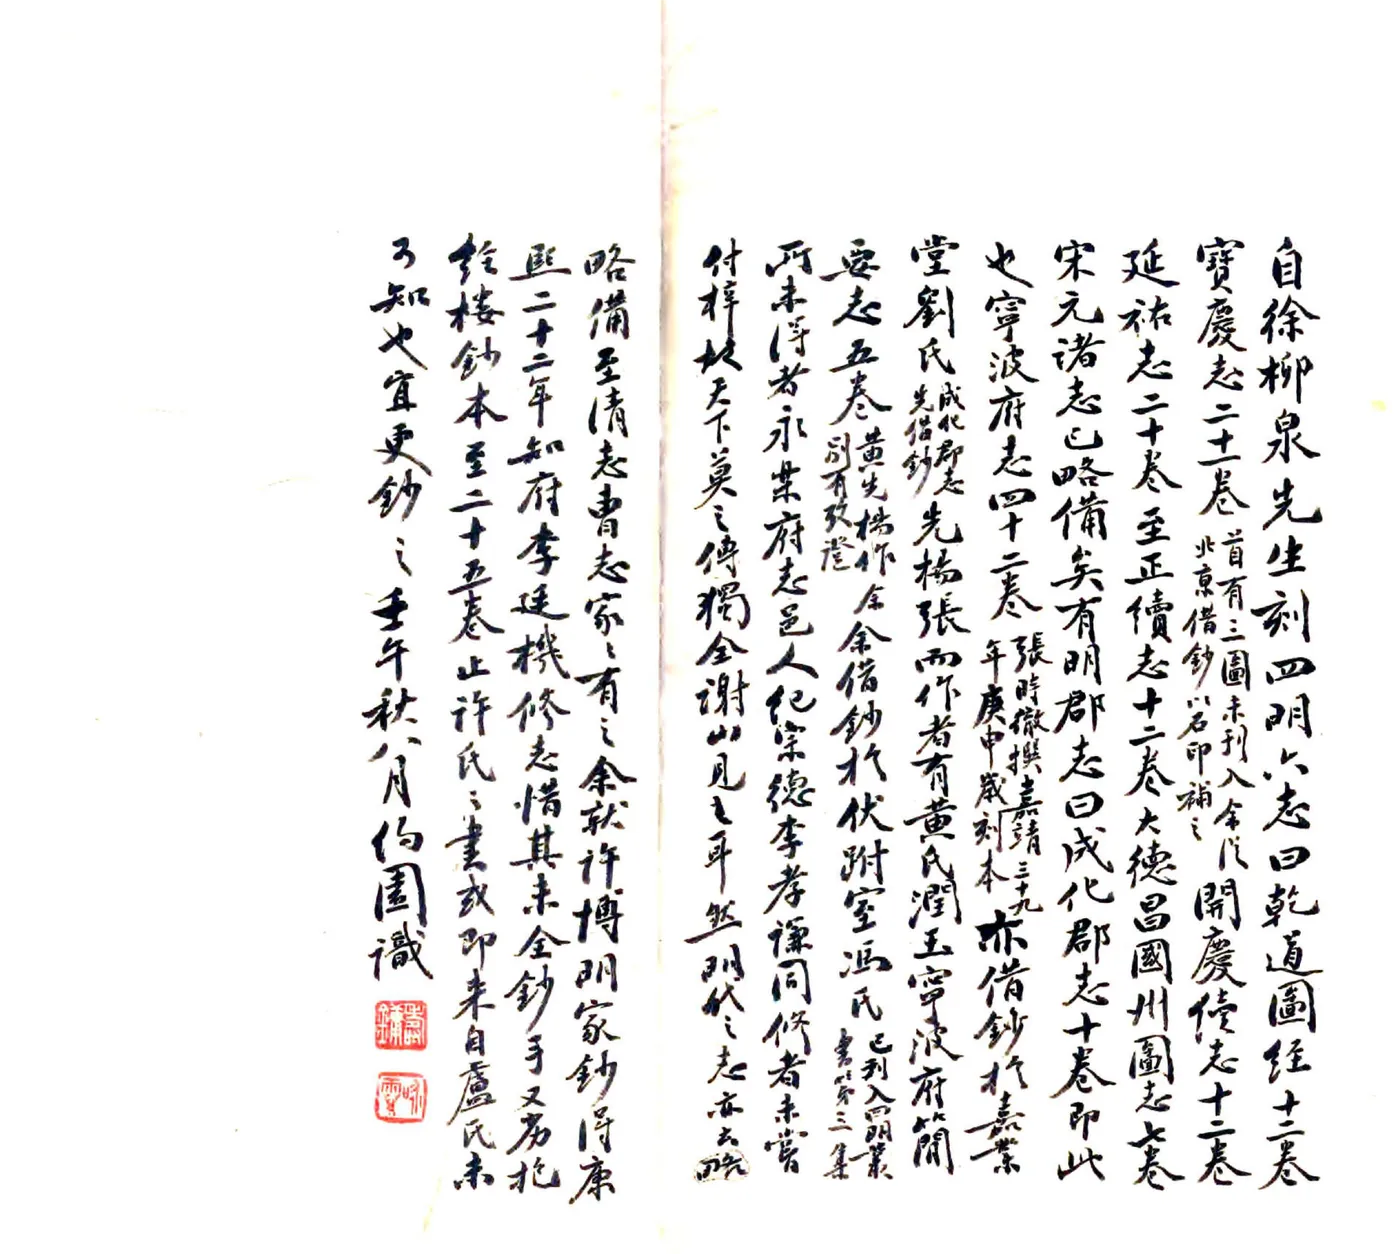 自徐柳泉先生刻四明六志曰乾道圖經十二卷
寶慶志二十一卷
首有三圖未刊入余從
北京借鈔以石印補之
開慶續志十二卷
延祐志二十卷至正續志十二卷大德昌國州圖志七卷
宋元諸志已略備矣有明郡志曰成化郡志十卷即此
也寧波府志四十二卷
張時徹撰嘉靖三十九
年庚申歲刻本
亦借鈔於嘉業
堂劉氏
成化郡志
先借鈔
先楊張而作者有黃氏潤玉寧波府簡
要志五卷
黃先楊作余
別有攷證
余借鈔於伏跗室馮氏
已刊入四明叢
書第三集
所未得者永樂府志邑人紀宗德李孝謙同修者未嘗
付梓故天下莫之傳獨全謝山見之耳然明代之志亦云略
略備至清志曹志家〻有之余就許博明家鈔得康
熙二十二年知府李廷機修志惜其未全鈔手又劣抱
經楼鈔本至二十五卷止許氏之書或即来自盧氏未
可知也宜更鈔之壬午秋八月约園識
壽鏞
詠霓